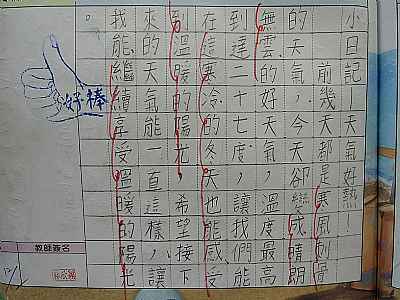 小日記—天氣好熱！
前幾天都是寒風刺骨
的天氣，今天卻變成晴朗
無雲的好天氣，溫度最高
到達二十七度，讓我們能
在這寒冷的冬天也能感受
到溫暖的陽光，希望接下
來的天氣能一直這樣，讓
我能繼續享受溫暖的陽光
。
好棒
教師簽名